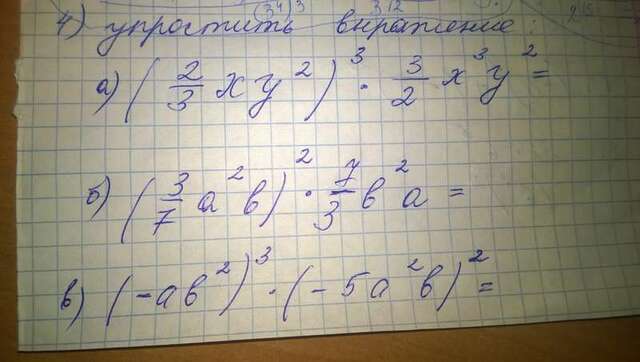 4) упростить выражение:
а) (2/3 xy²)³ · 3/2 x³y² =
б) (3/7 a²b)² · 7/3 b²a =
в) (-ab²)³ · (-5a²b)² =